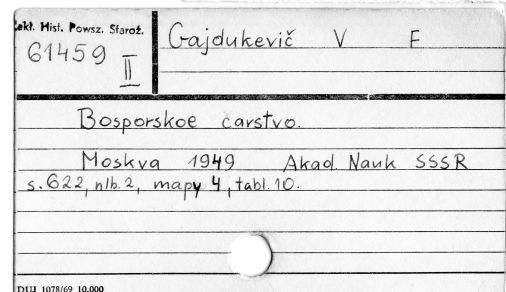 Zakł. Hist. Powsz. Staroż.
61459
II
Gajdukevič V F
Bosporskoe carstvo.
Moskva 1949 Akad. Nauk SSSR
s. 622, nlb. 2, mapy 4, tabl. 10.
DUJ 1078/69 10.000